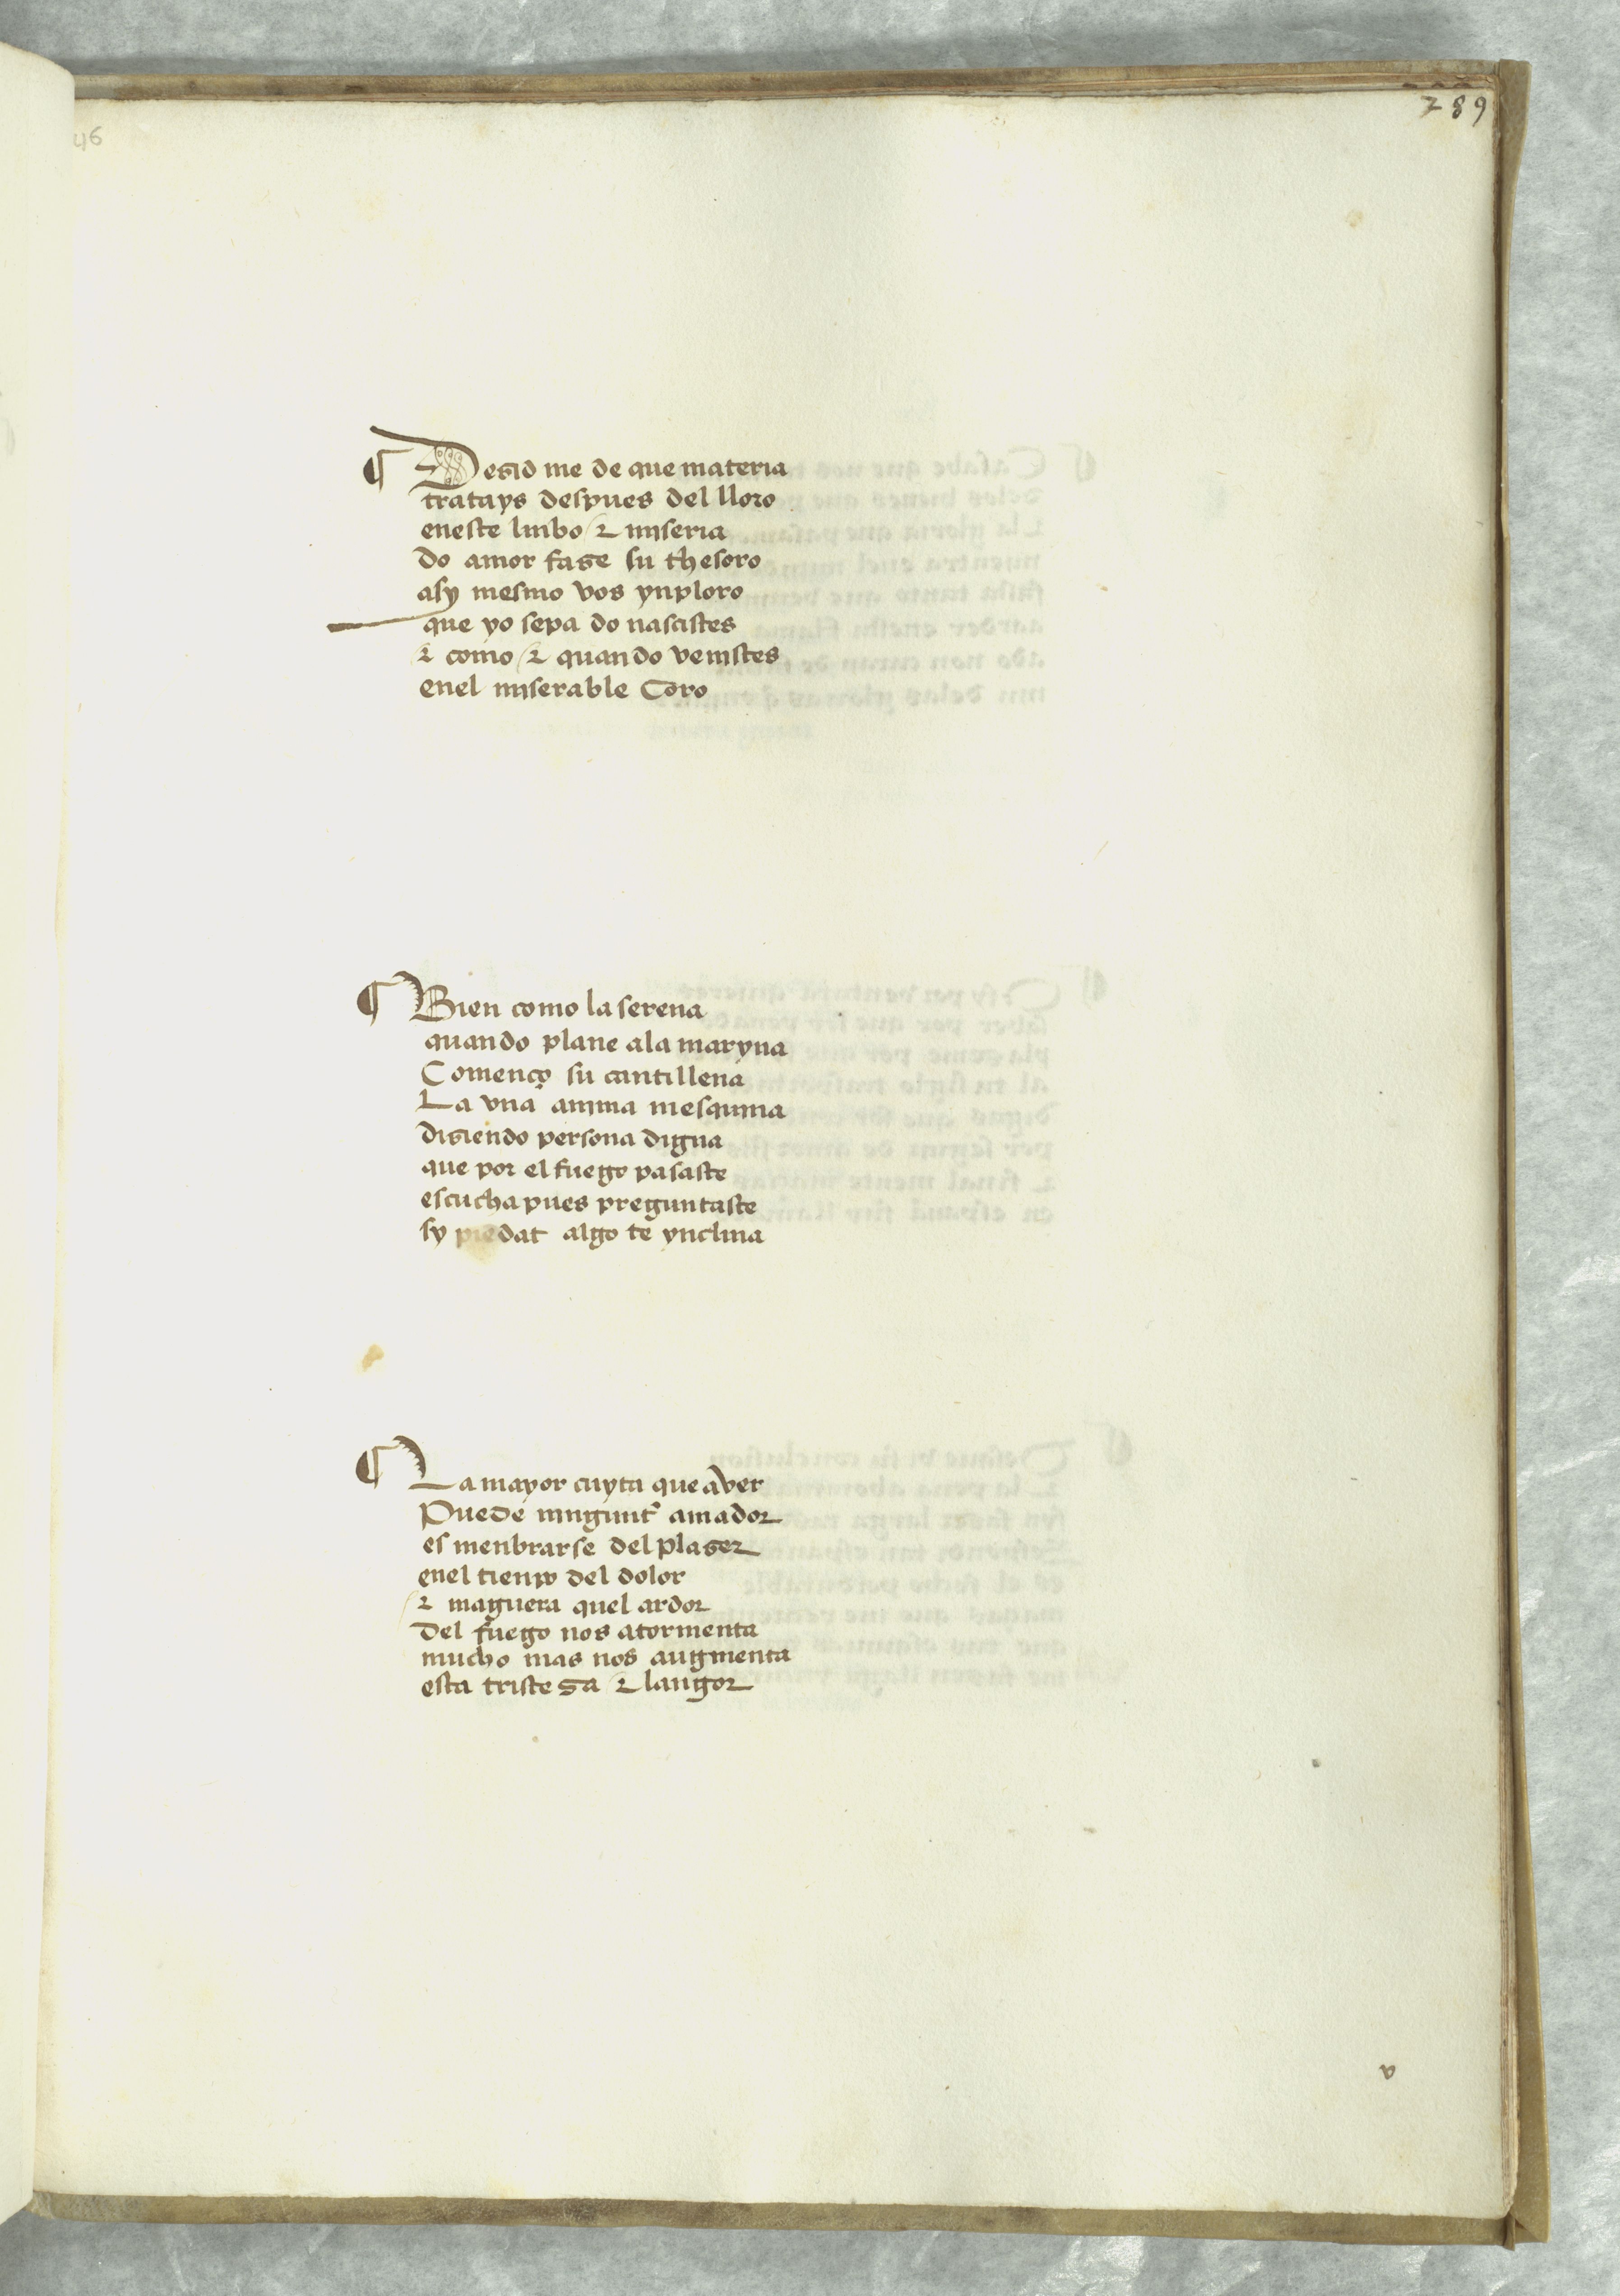 289
46
¶ Desid me de que materia
tratays despues del lloro
eneste linbo ⁊ miseria
do amor fase su thesoro
asy mesmo vos ynploro
que yo sepa do nascistes
⁊ como ⁊ quando venistes
enel miserable Coro
¶ Bien como la serena
quando plane ala maryna
Començo su cantillena
La vna anima mesquina
disiendo persona digna
que por el fuego pasaste
escucha pues preguntaste
sy piedat algo te ynclina
¶ La mayor cuyta que aver
Puede ningunt amador
es menbrarse del plaser
enel tienpo del dolor
⁊ maguera quel ardor
del fuego nos atormenta
mucho mas nos augmenta
esta tristesa ⁊ langor
v